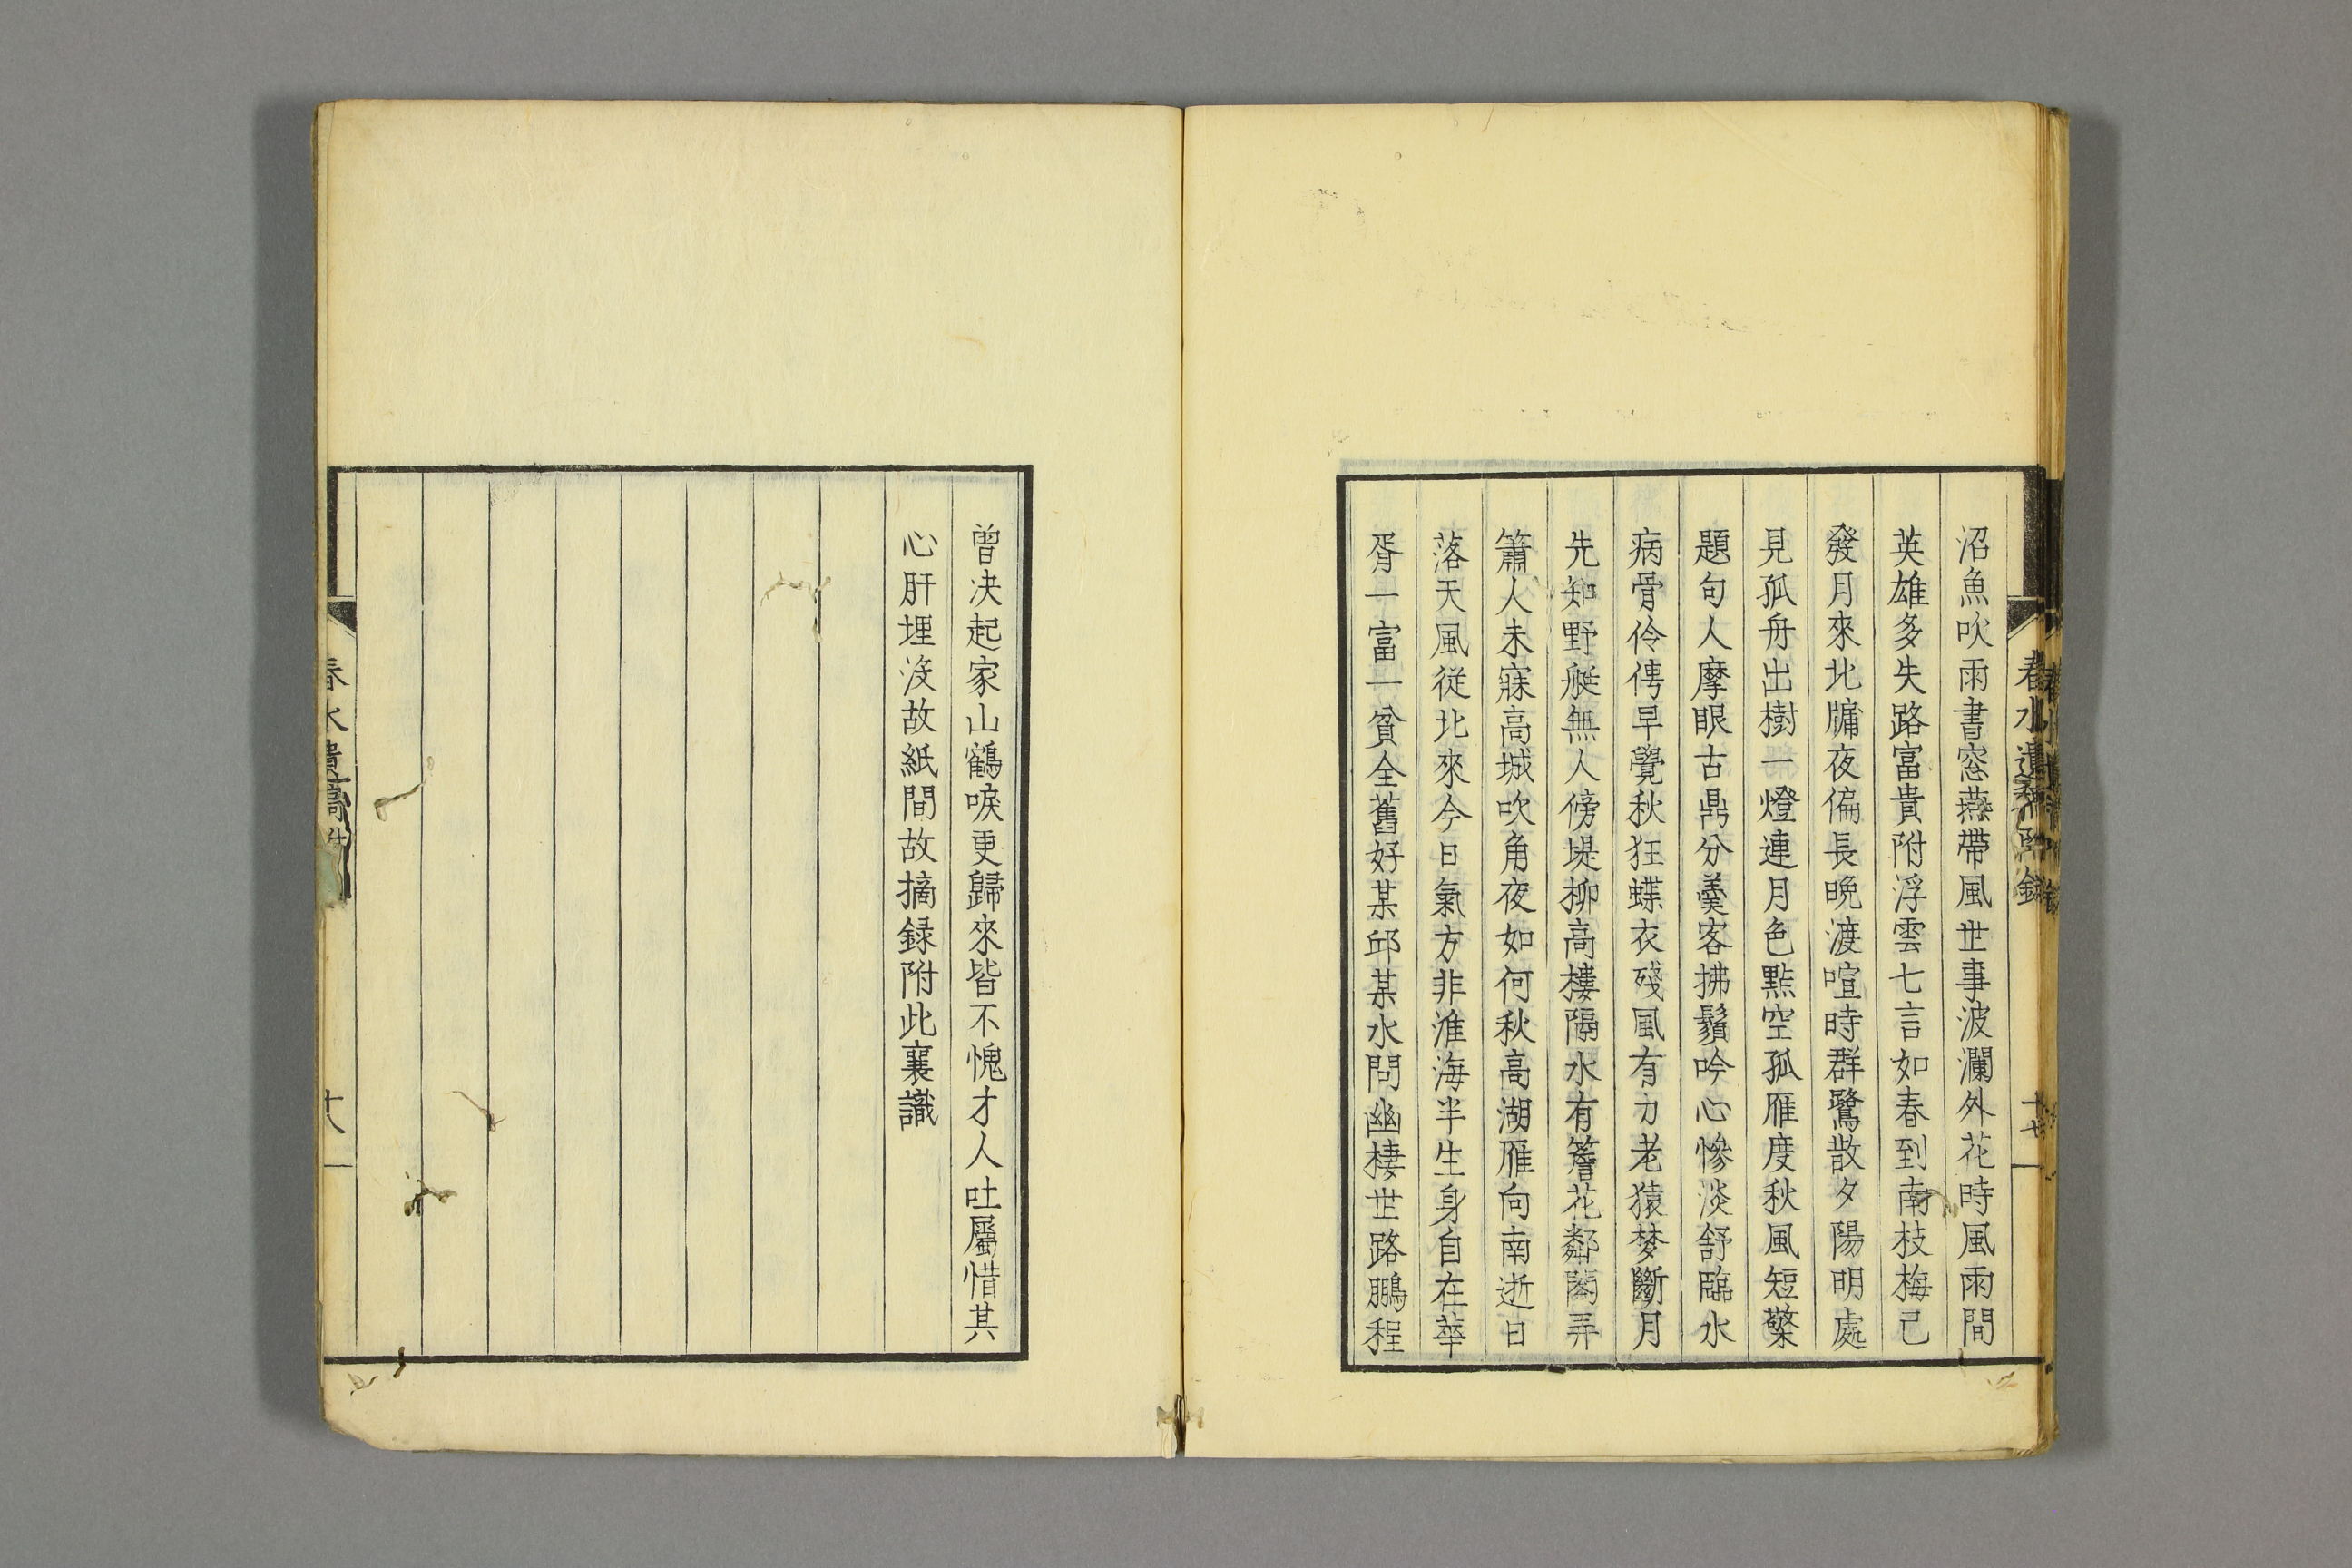 沼魚吹雨書窓燕帶風世事波瀾外花時風雨間
英雄多失路富貴附浮雲七言如春到南枝梅已
發月來北牗夜偏長晩渡喧時群鷺散夕陽明處
見孤舟出樹一燈連月色點空孤雁度秋風短檠
題句人摩眼古鼎分羹客拂鬚吟心慘淡舒臨水
病骨伶俜早覺秋狂蝶衣殘風有力老猿梦斷月
先知野艇無人傍堤柳高樓隔水有簷花鄰閣弄
簫人未寐高城吹角夜如何秋高湖雁向南逝日
落天風從北來今日氣方非淮海半生身自在華
胥一富一貧全舊好某邱某水問幽棲世路鵬程
春水遺稿 附錄
十七
曽决起家山鶴唳更歸來皆不愧才人吐屬惜其
心肝埋沒故紙間故摘録附此襄識
春水遺稿
十八